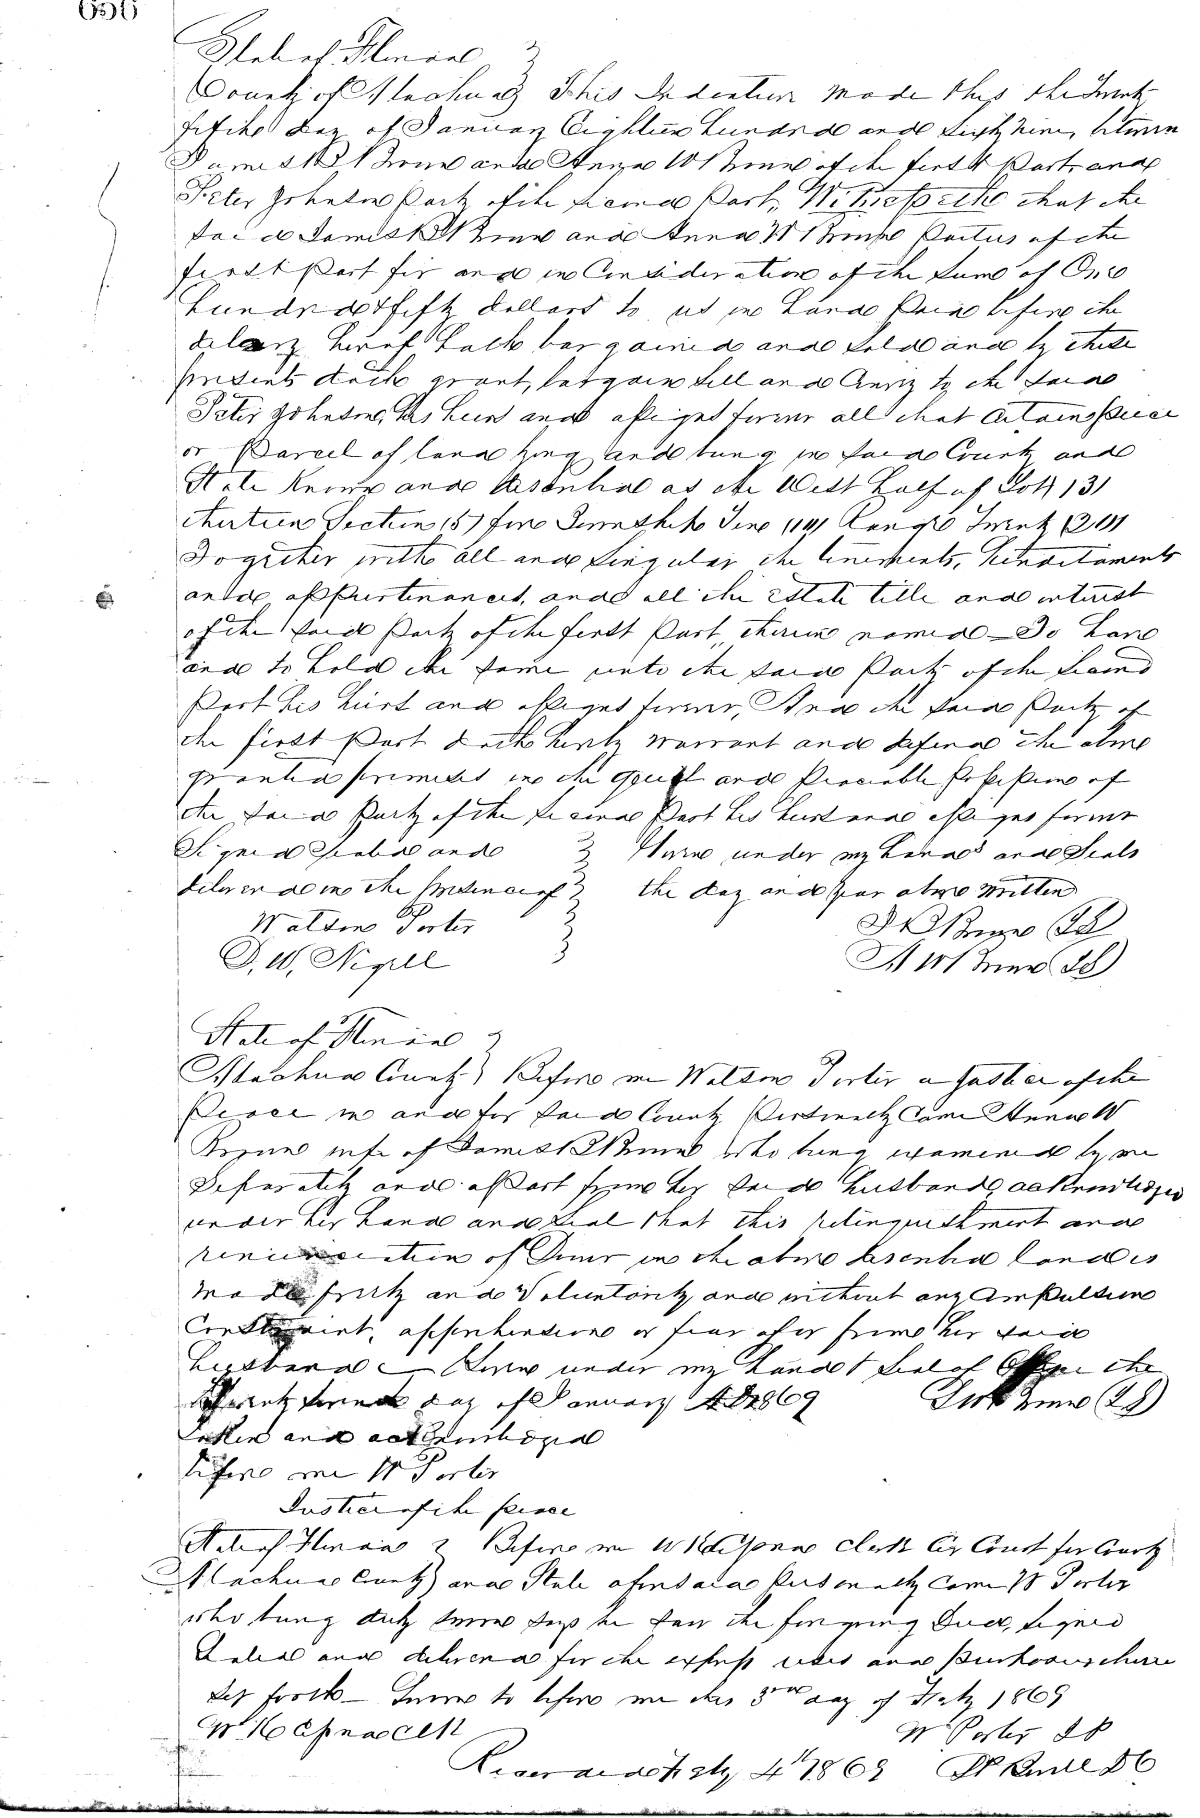 656
State of Florida
County of Alachua This Indenture made this the Twenty
fifth day of January Eighteen hundred and sixty nine, between
James B Brown and Anna W Brown of the first Part, and
Peter Johnson Party of the second Part, Witnesseth that the
said James B Brown and Anna W Brown Parties of the
first Part for and in Consideration of the sum of One
hundred & fifty dollars to us in hand Paid before the
delivery hereof hath bargained and sold and by these
presents doth grant, bargain sell and Convey to the said
Peter Johnson, his heirs and assigns forever all that certain piece
or Parcel of land lying and being in said County and
State Known and described as the West half of Lot (3)
Section (5) five Township Ten (10) Range Twenty (20)
Together with all and singular the tenements, hereditaments
and appurtenances, and all the estate title and interest
of the said Party of the first Part, therein named - To have
and to hold the same unto the said Party of the second
Part his heirs and assigns forever, And the said Party of
the first Part doth hereby warrant and defend the above
granted premises in the quiet and Peaceable Possession of
the said Party of the second Part his heirs and assigns forever
Signed Sealed and Given under my hands and Seals
delivered in the presence of the day and year above written
Watson Porter J B Brown (LS)
D. W. A W Brown (LS)
State of Florida
Alachua County Before me Watson Porter a Justice of the
Peace in and for said County Personally Came Anna W
Brown wife of James B Brown who being examined by me
Separately and apart from her said husband, acknowledged
under her hand and seal that this relinquishment and
renunciation of Dower in the above described land is
made freely and Voluntarily and without any Compulsion
Constraint, apprehension or fear of or from her said
husband - Given under my hand & seal of Office the
Twenty day of January AD 1869 Brown (LS)
Taken and acknowledged
before me W Porter
Justice of the peace
State of Florida Before me W K Clerk Cir Court for County
Alachua County and State aforesaid Personally came W Porter
who being duly sworn says he saw the foregoing Deed, signed
Sealed and delivered for the express uses and Purposes therein
set forth - Sworn to before me this 3rd day of Feby 1869
W K Clk W Porter JP
Recorded Feby 4th 1869 DC